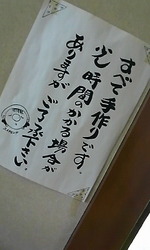 すべて手作りです。
少し時間のかかる場合が
ありますが ご了承下さい。